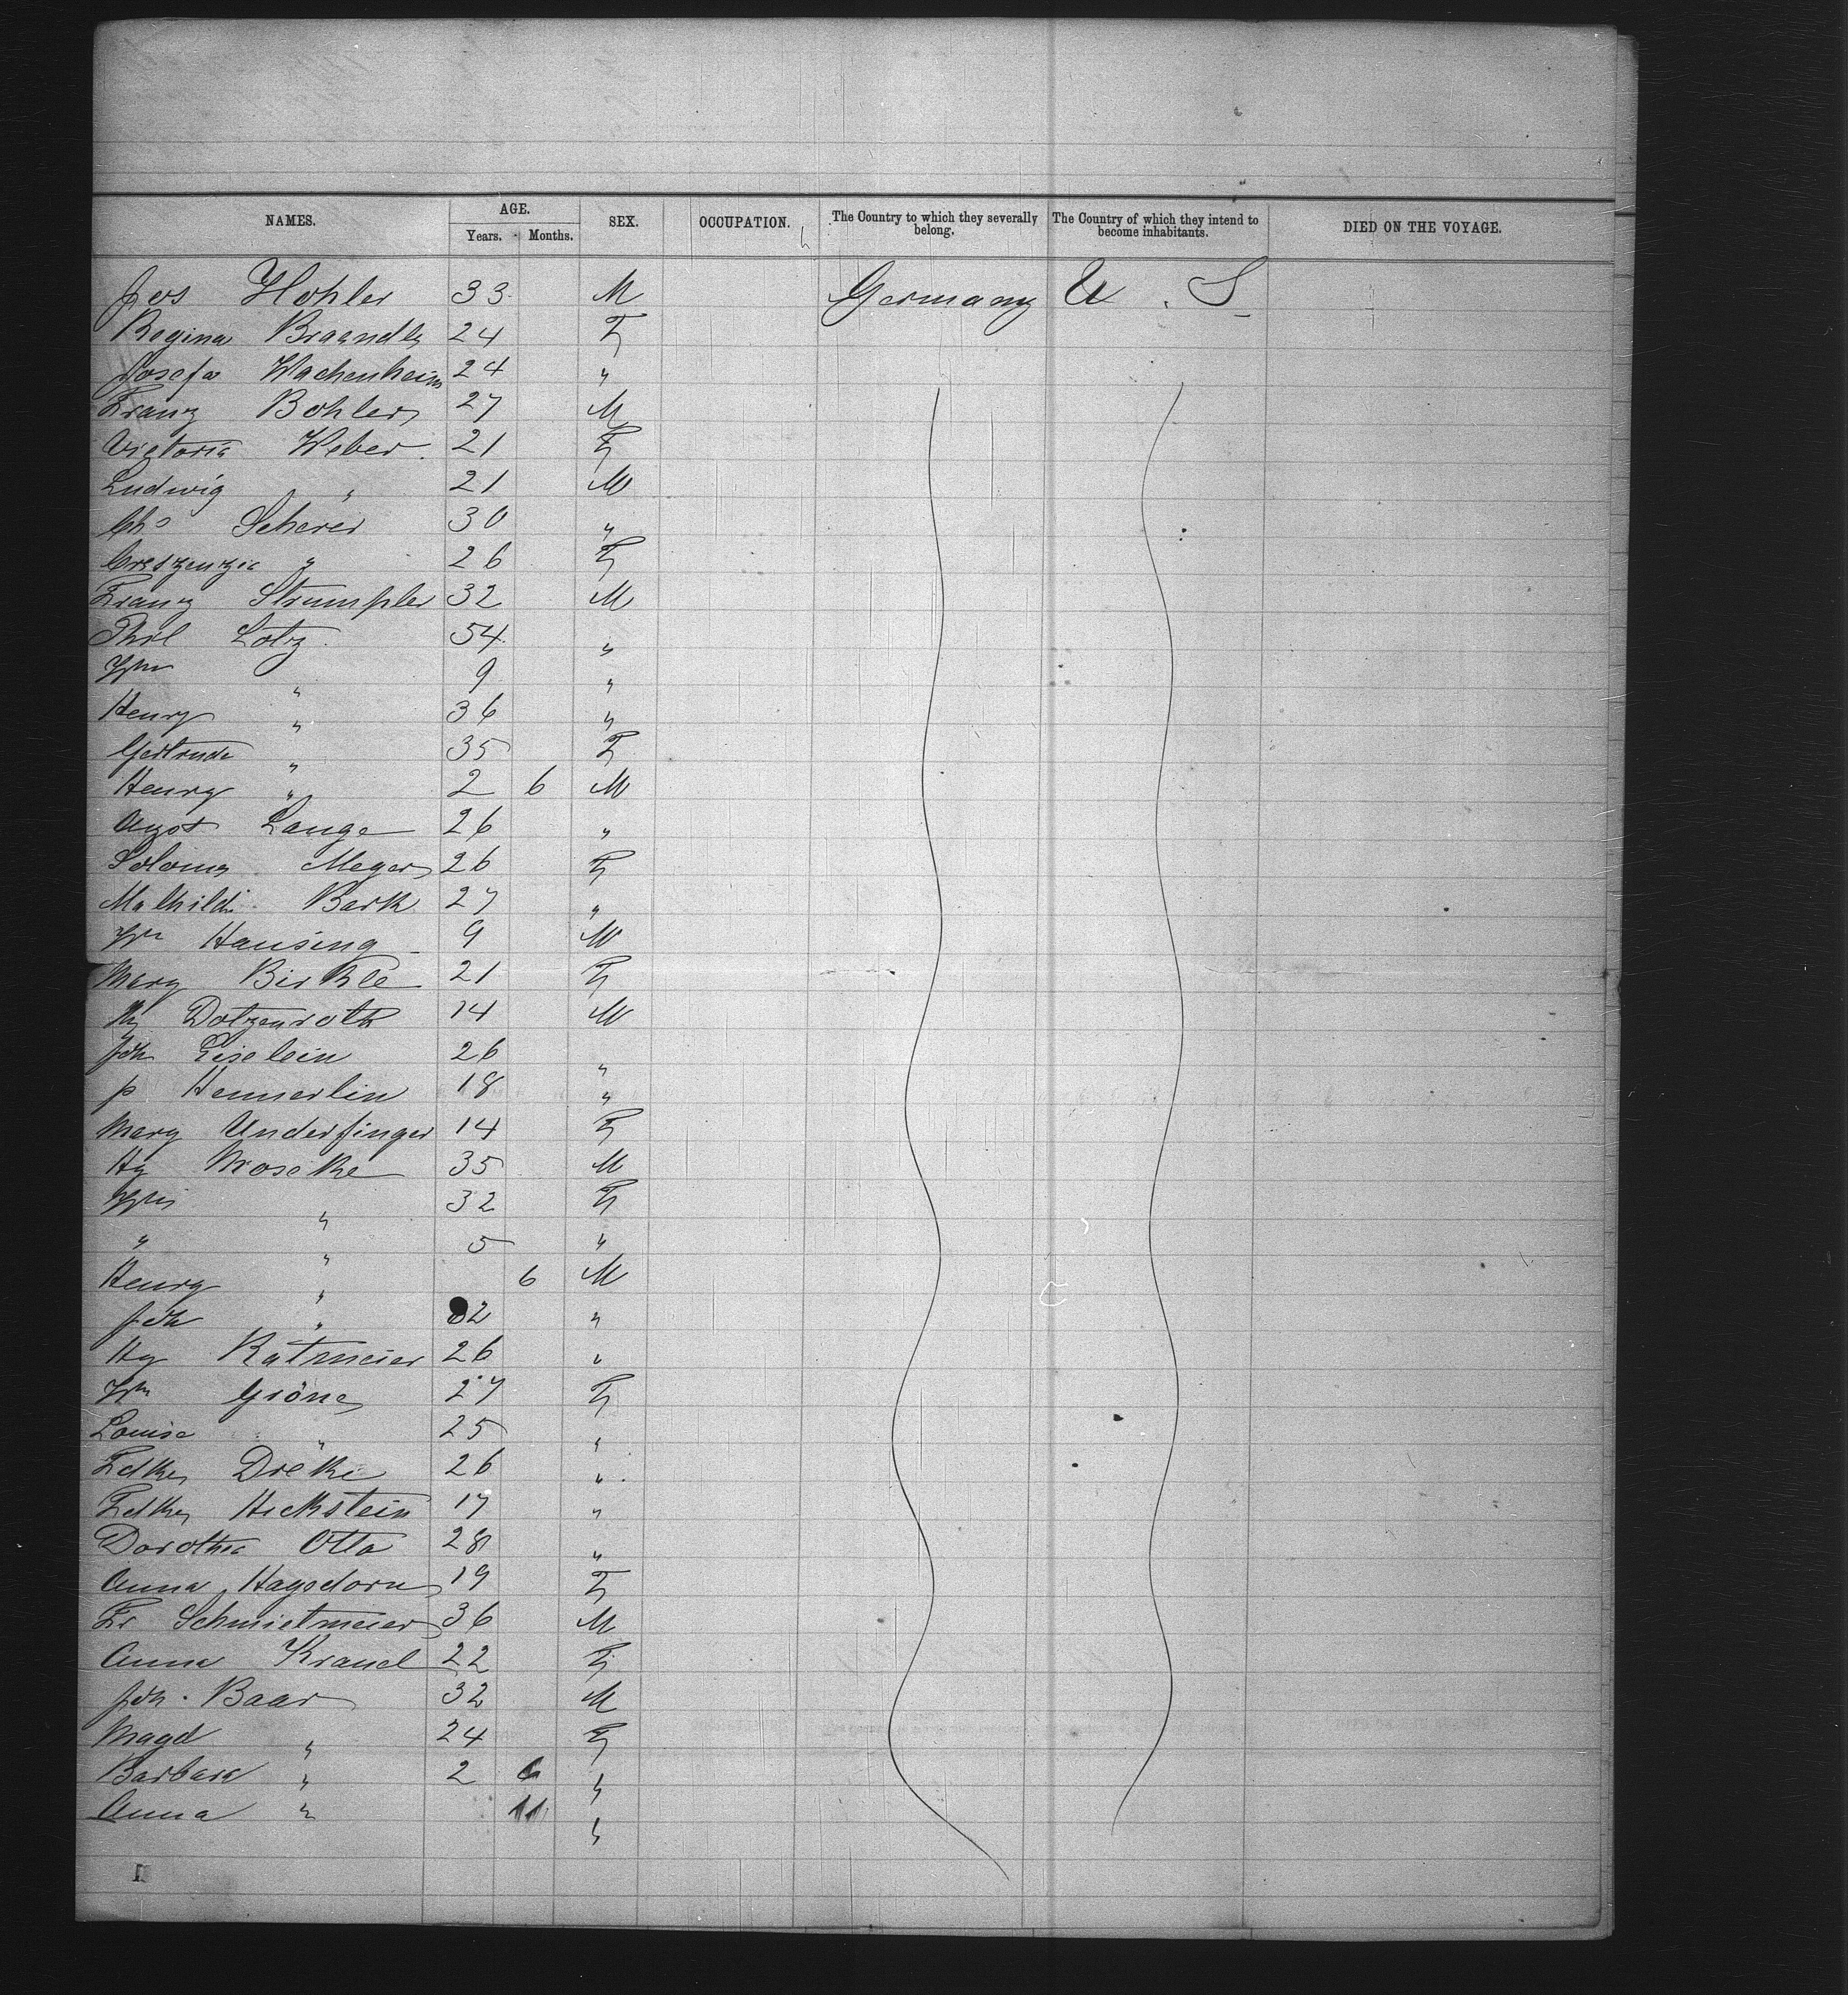 NAMES. AGE. SEX. OCCUPATION. The Country to which they severally belong. The Country of which they intend to become inhabitants. DIED ON THE VOYAGE.
Years. Months.
Jos Hohler 33 M Germany U. S
Regina Braendle 24 F
Josefa Wachenheim 24 "
Franz Bohler 27 M
Victoria Weber 21 F
Ludwig " 21 M
Chs Scherer 30 "
Creszenzia " 26 F
Franz Strumpler 32 M
Phil Lotz 54 "
Wm " 9 "
Henry " 36 "
Gertrude " 35 F
Henry " 2 6 M
Agst Lange 26 "
Meyer 26 F
Mathilde Bark 27 "
Wm Hansing 9 M
Mary Birkle 21 F
Hy Dotzenroth 14 M
Joh Eiselein 26 "
p Hemerlin 18 "
Mary Underfinger 14 F
Hy Moseke 35 M
" 32 F
" " 5 "
Henry " 6 M
Joh " 32 "
Hy Ratmeier 26 "
Wm Gröne 27 F
Louise " 25 "
Fdke Dreke 26 "
Fdke Hickstein 17 "
Dorothea Otto 28 "
Anna Hagedorn 19 F
Fr Schmietmeier 36 M
Anna Krand 22 F
Joh. Baar 32 M
Magd " 24 F
Barbara " 2 6 "
Anna " 11 "